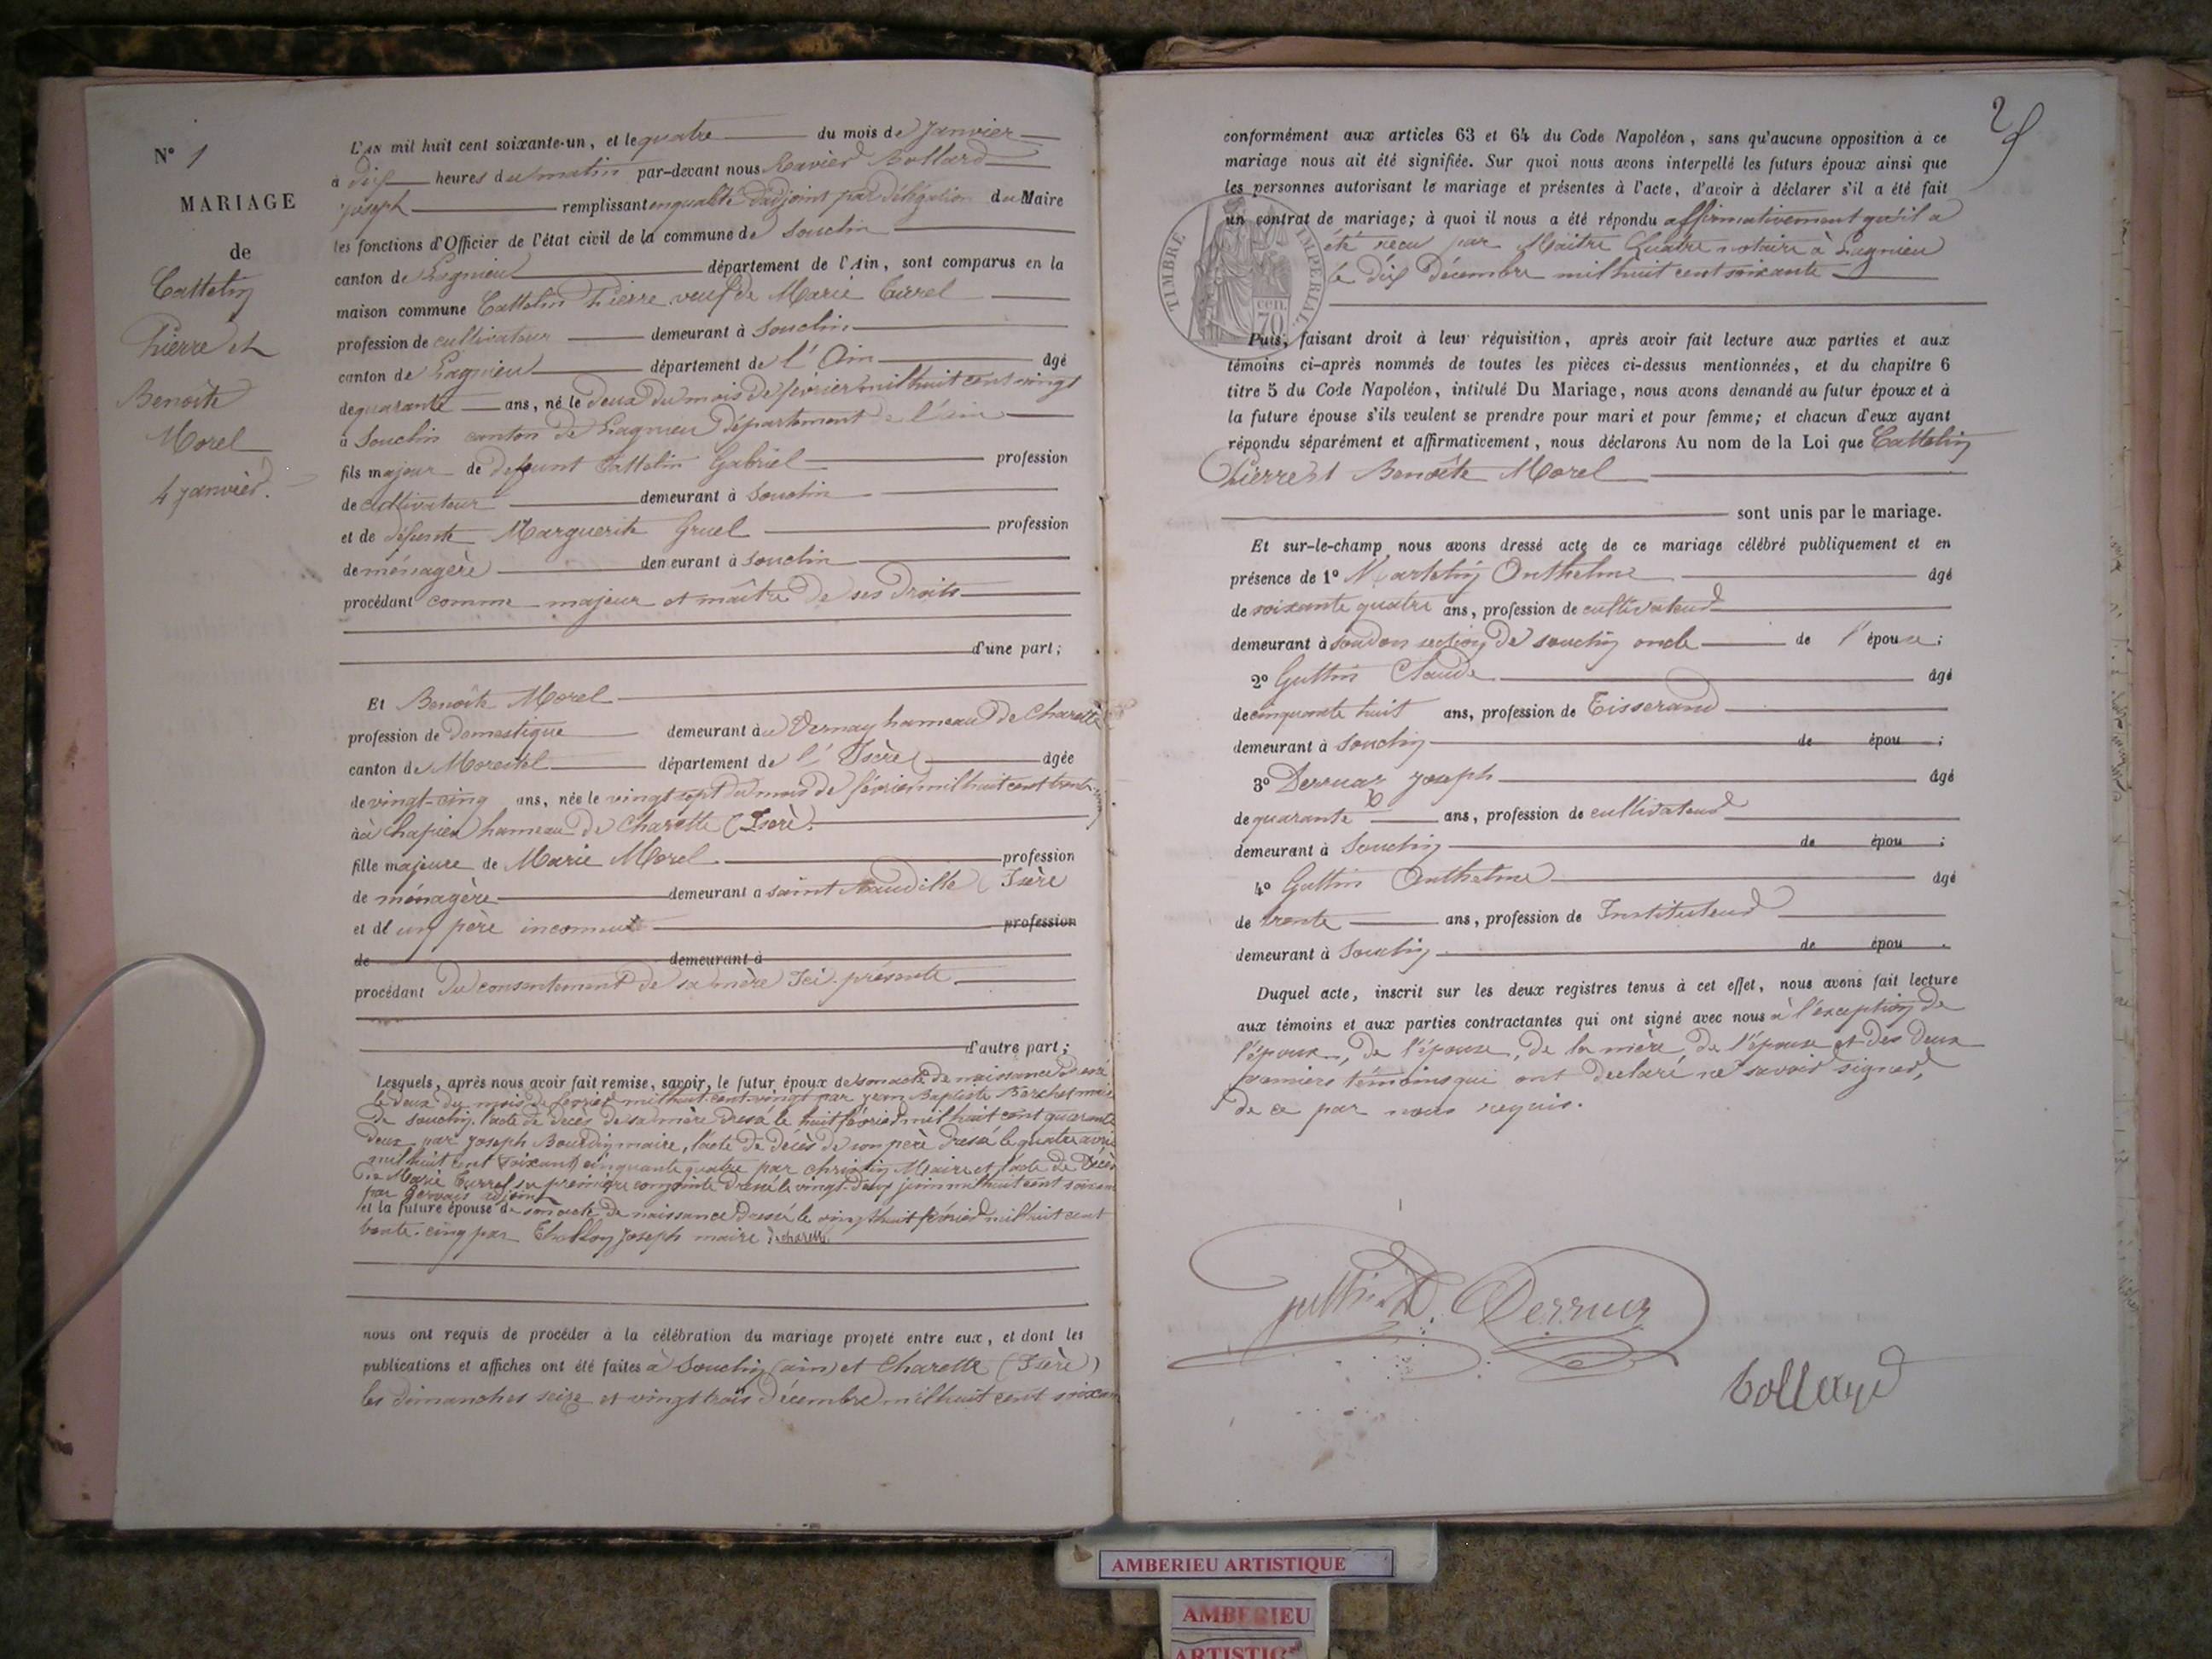 N° 1
MARIAGE
de
Cattelin
Pierre et
Benoîte
Morel
4 janvier.
L'AN mil huit cent soixante-un, et le quatre du mois de Janvier
à dix heures du matin par-devant nous Bollard
joseph remplissant en qualité d'adjoint par délégation du Maire
les fonctions d'Officier de l'état civil de la commune de Souclin
canton de Lagnieu département de l'Ain, sont comparus en la
maison commune Cattelin Pierre veuf de Marie Currel
profession de cultivateur demeurant à Souclin
canton de Lagnieu département de l'Ain âgé
de quarante ans, né le deux du mois de février mil huit cent vingt
à Souclin canton de Lagnieu département de l'ain
fils majeur de defunt Cattelin Gabriel profession
de cultivateur demeurant à Souclin
et de défunte Marguerite Gruel profession
de ménagère demeurant à Souclin
procédant comme majeur et maître de ses droits
d'une part;
Et Benoîte Morel
profession de Domestique demeurant à Vernay hameau de Charette
canton de Morestel département de l'Isère âgée
de vingt-cinq ans, née le vingt sept du mois de février mil huit cent trente-cinq
à Chapieu hameau de Charette (Isère)
fille majeure de Marie Morel profession
de ménagère demeurant a saint Baudille (Isère
et de un père inconnu profession
de demeurant à
procédant du consentement de sa mère Ici présente
d'autre part;
Lesquels, après nous avoir fait remise, savoir, le futur époux de son acte de naissance dressé
le deux du mois de fevrier mil huit cent vingt par jean Baptiste Berchet maire
de souclin, l'acte de décès de sa mère dressé le huit février mil huit cent quarante
deux par joseph Bourdin maire, l'acte de décès de son père dressé le quatre avril
mil huit cent soixante cinquante quatre par christin Maire et l'acte de Décès
de Marie Currel sa première conjointe dressé le vingt-deux juin mil huit cent soixante
par Gervais adjoint
et la future épouse de son acte de naissance dressé le vingt huit février mil huit cent
trente-cinq par Thollon Joseph maire de charette
nous ont requis de procéder à la célébration du mariage projeté entre eux, et dont les
publications et affiches ont été faites à Souclin (ain) et Charette (Isère)
les dimanches seize et vingt trois décembre mil huit cent soixante
2
conformément aux articles 63 et 64 du Code Napoléon, sans qu'aucune opposition à ce
mariage nous ait été signifiée. Sur quoi nous avons interpellé les futurs époux ainsi que
les personnes autorisant le mariage et présentes à l'acte, d'avoir à déclarer s'il a été fait
un contrat de mariage; à quoi il nous a été répondu affirmativement qu'il a
été reçu par Maitre Quatre notaire à Lagnieu
le dix Décembre mil huit cent soixante
TIMBRE IMPERIAL
70 cen.
Puis, faisant droit à leur réquisition, après avoir fait lecture aux parties et aux
témoins ci-après nommés de toutes les pièces ci-dessus mentionnées, et du chapitre 6
titre 5 du Code Napoléon, intitulé Du Mariage, nous avons demandé au futur époux et à
la future épouse s'ils veulent se prendre pour mari et pour femme; et chacun d'eux ayant
répondu séparément et affirmativement, nous déclarons Au nom de la Loi que Cattelin
Pierre et Benoîte Morel
sont unis par le mariage.
Et sur-le-champ nous avons dressé acte de ce mariage célébré publiquement et en
présence de 1° Martelin Anthelme âgé
de soixante quatre ans, profession de cultivateur
demeurant à soudon section de souclin oncle de l'épouse;
2° Guttin Claude âgé
de cinquante huit ans, profession de Tisserand
demeurant à Souclin de épou ;
3° Derruaz joseph âgé
de quarante ans, profession de cultivateur
demeurant à Souclin de épou ;
4° Guttin Anthelme âgé
de trente ans, profession de Instituteur
demeurant à Souclin de épou .
Duquel acte, inscrit sur les deux registres tenus à cet effet, nous avons fait lecture
aux témoins et aux parties contractantes qui ont signé avec nous à l'exception de
l'époux, de l'épouse, de la mère, de l'épouse et des deux
premiers témoins qui ont déclaré ne savoir signer,
de ce par nous requis.
Derruaz
bollard
AMBERIEU ARTISTIQUE
AMBERIEU
ARTISTIQ